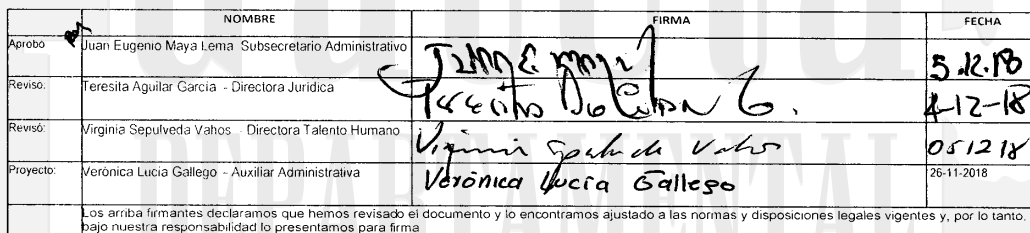 NOMBRE FIRMA FECHA
Aprobó Juan Eugenio Maya Lema Subsecretario Administrativo 5.12.18
Revisó: Teresita Aguilar García - Directora Jurídica 4-12-18
Revisó: Virginia Sepulveda Vahos - Directora Talento Humano Virginia Sepulveda Vahos 051218
Proyecto: Verónica Lucía Gallego - Auxiliar Administrativa Verónica Lucía Gallego 26-11-2018
Los arriba firmantes declaramos que hemos revisado el documento y lo encontramos ajustado a las normas y disposiciones legales vigentes y, por lo tanto,
bajo nuestra responsabilidad lo presentamos para firma